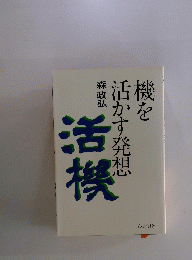 機を
活かす発想
森政弘
活機